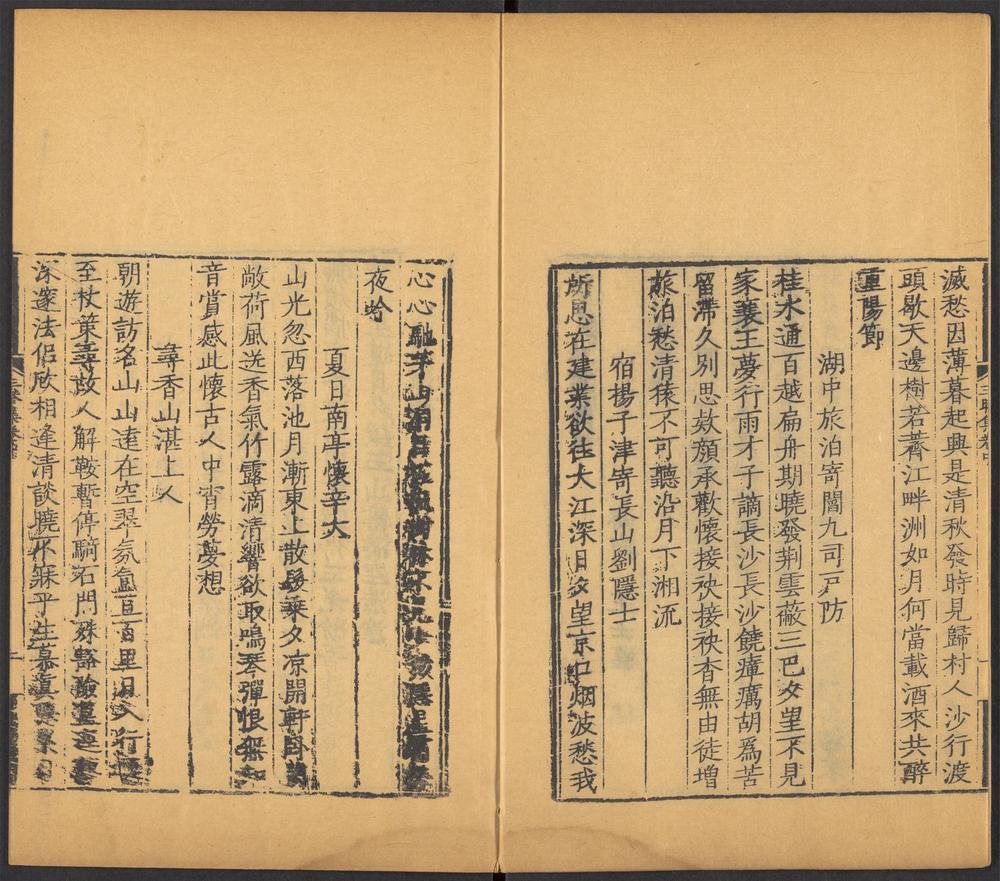 滅愁因薄暮起興是清秋發時見歸村人沙行渡
頭歇天邊樹若薺江畔洲如月何當載酒來共醉
重陽節
湖中旅泊寄閻九司戸防
桂水通百越扁舟期曉發荆雲蔽三巴夕望不見
家襄王夢行雨才子謫長沙長沙饒瘴癘胡爲苦
留滯久别思欵顔承歡懷接袂接袂杳無由徒增
旅泊愁清猿不可聽沿月下湘流
宿楊子津寄長山劉隱士
所思在建業欲往大江深日夕望京口烟波愁我
心心馳茅山
夜吟
夏日南亭懷辛大
山光忽西落池月漸東上散髮乗夕凉開軒卧
敞荷風送香氣竹露滴清響欲取鳴琴彈恨無
音賞感此懷古人中宵勞夢想
尋香山湛上人
朝遊訪名山山遠在空翠氛氲亘百里日入行
至杖策尋故人解鞍暫停騎石門殊豁險
深邃法侶欣相逢清談曉不寐平生慕真